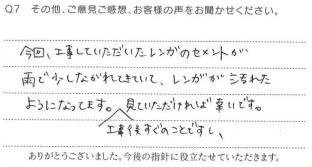 Q7 その他、ご意見ご感想、お客様の声をお聞かせください。
今回、工事していただいたレンガのセメントが
雨で少しながれてきていて、レンガが汚れた
ようになってます。見ていただければ幸いです。
工事後すぐのことですし、
ありがとうございました。今後の指針に役立たせていただきます。